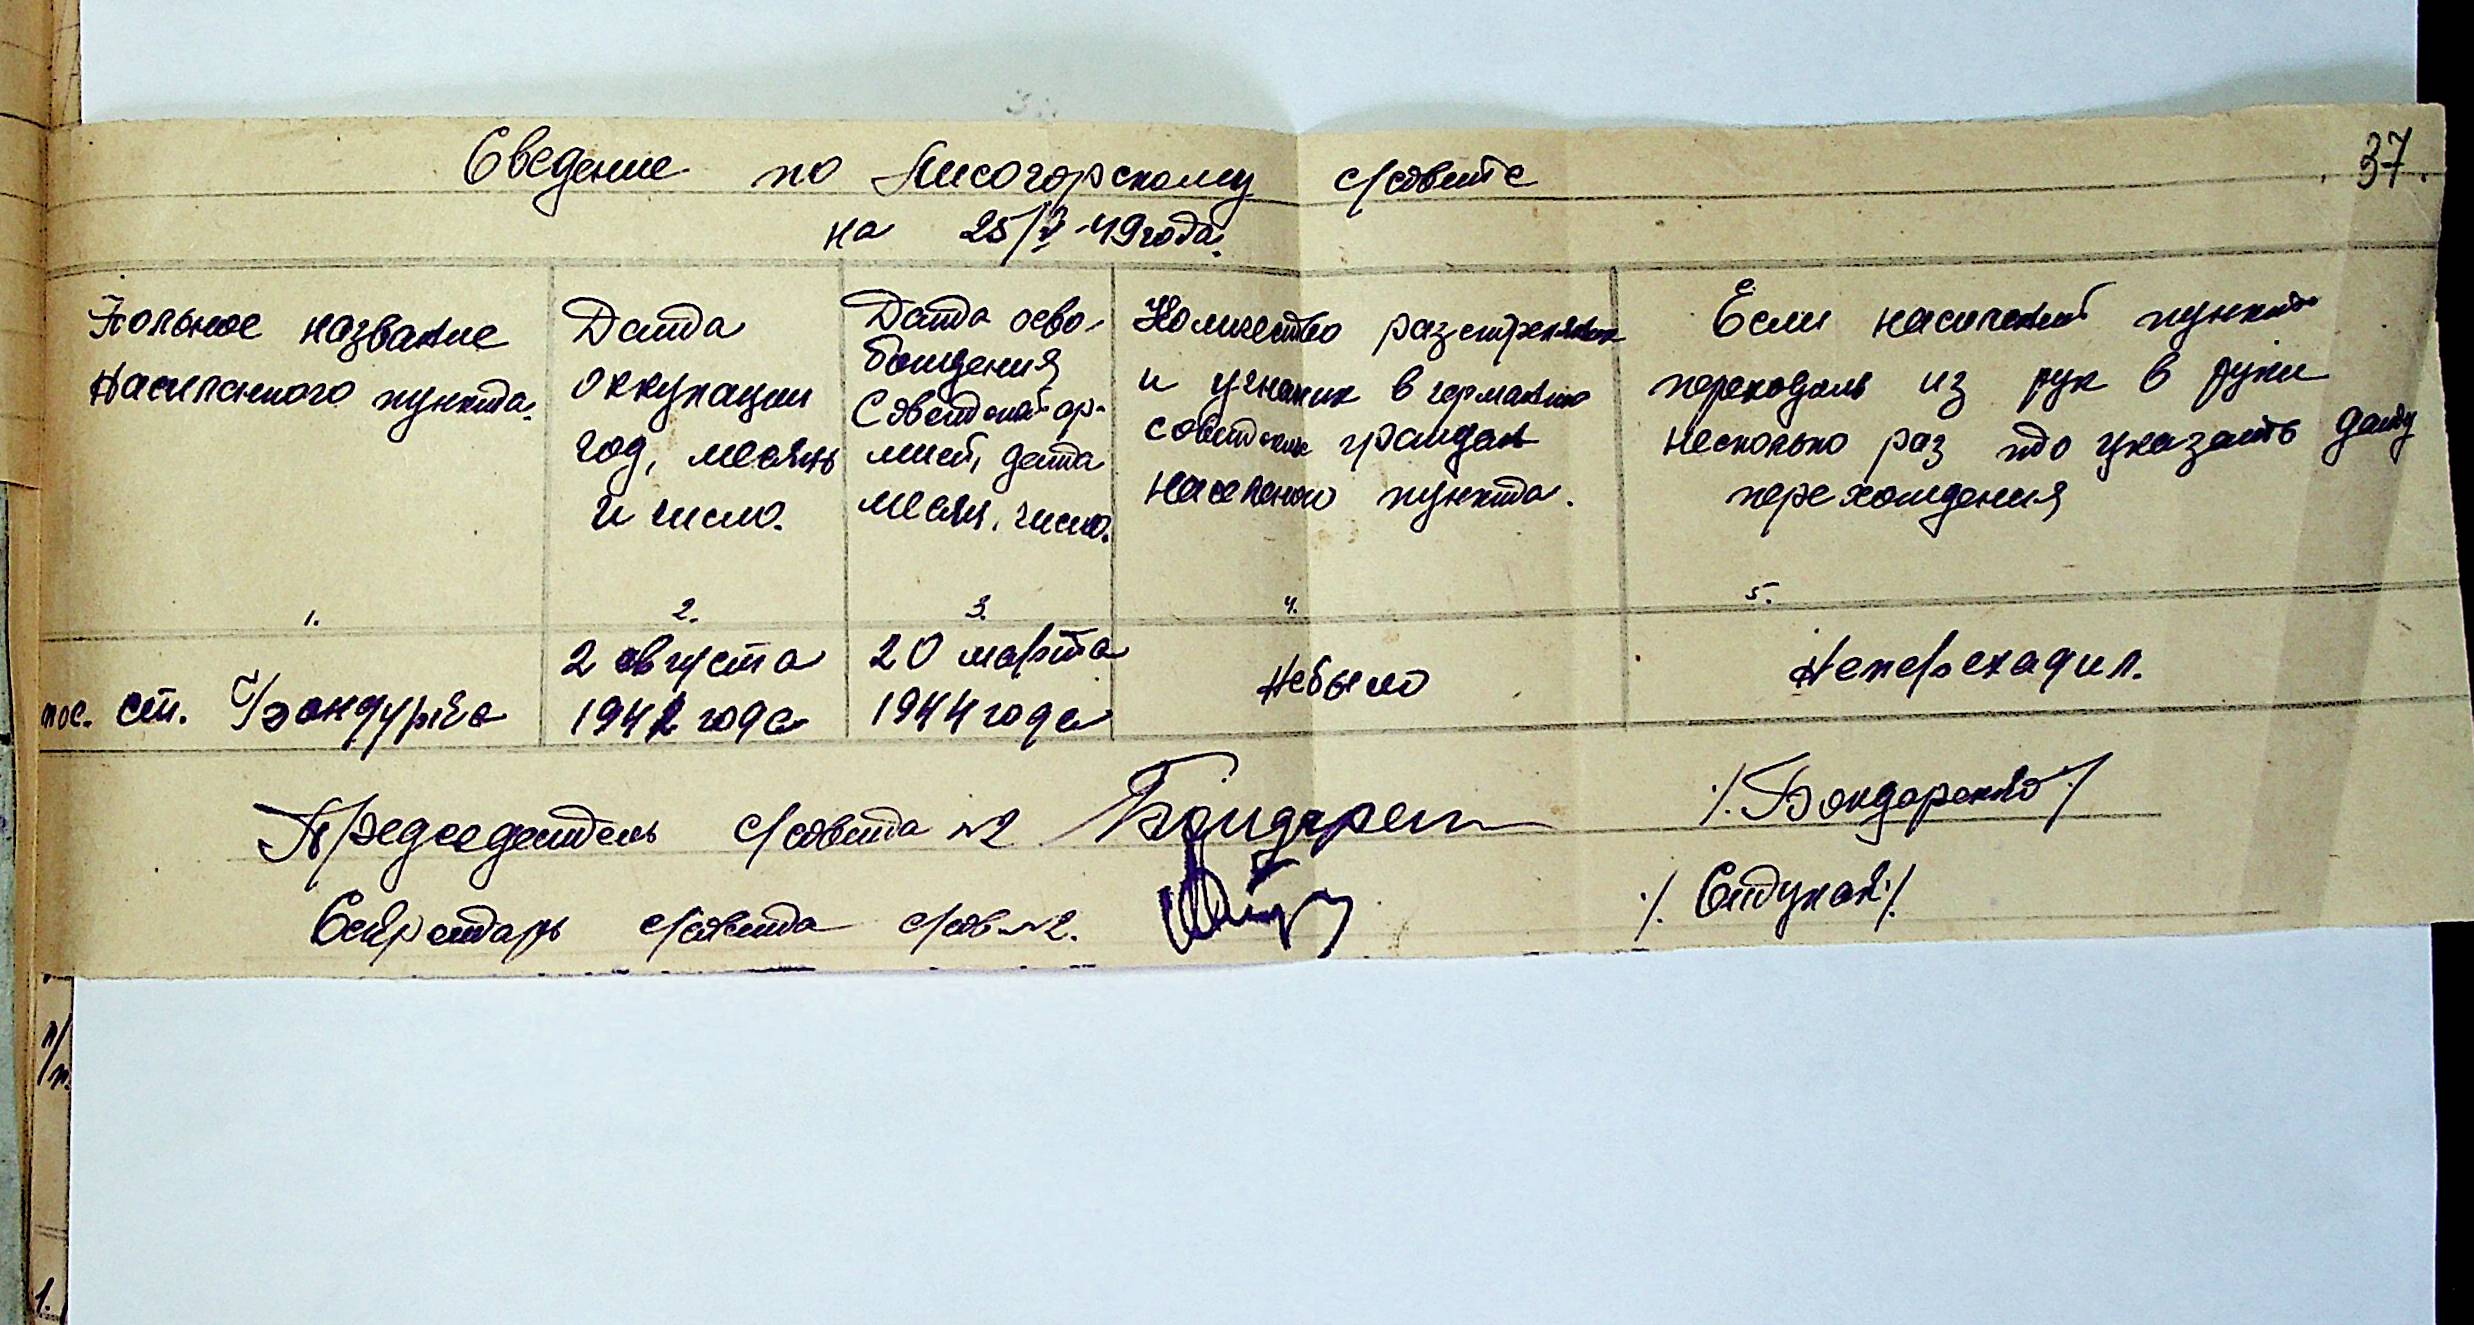 37.
Сведение по Лисогорскому с/совите
на 25/V-49 года.
Польное название
насиленного пункта.
1.
Дата
оккупации
год, месяць
и число.
2.
Дата осво-
бождения
Советской ар-
мией, дата
месяц, число.
3.
Количество разстреляных
и угнаных в германию
советских граждан
населеного пункта.
4.
Если насиленый пункт
переходил из рук в руки
несколько раз то указать дату
перехождения
5.
пос. ст. Бандурка
2 августа
1941 года
20 марта
1944 года
Небыло
Неперехадил.
Председатель с/совета №2 Бондарен ./. Бондаренко ./.
Секретарь с/совета с/сов. №2. ./. ./.
п/п.
1.